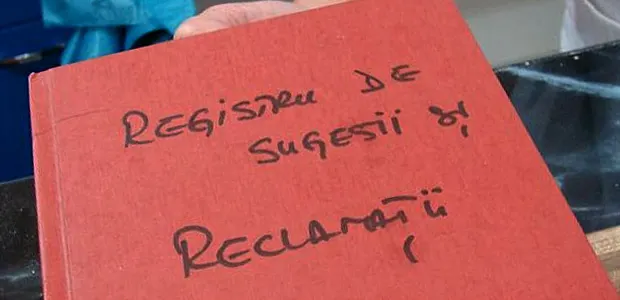 REGISTRU DE
SUGESII ȘI
RECLAMAȚII